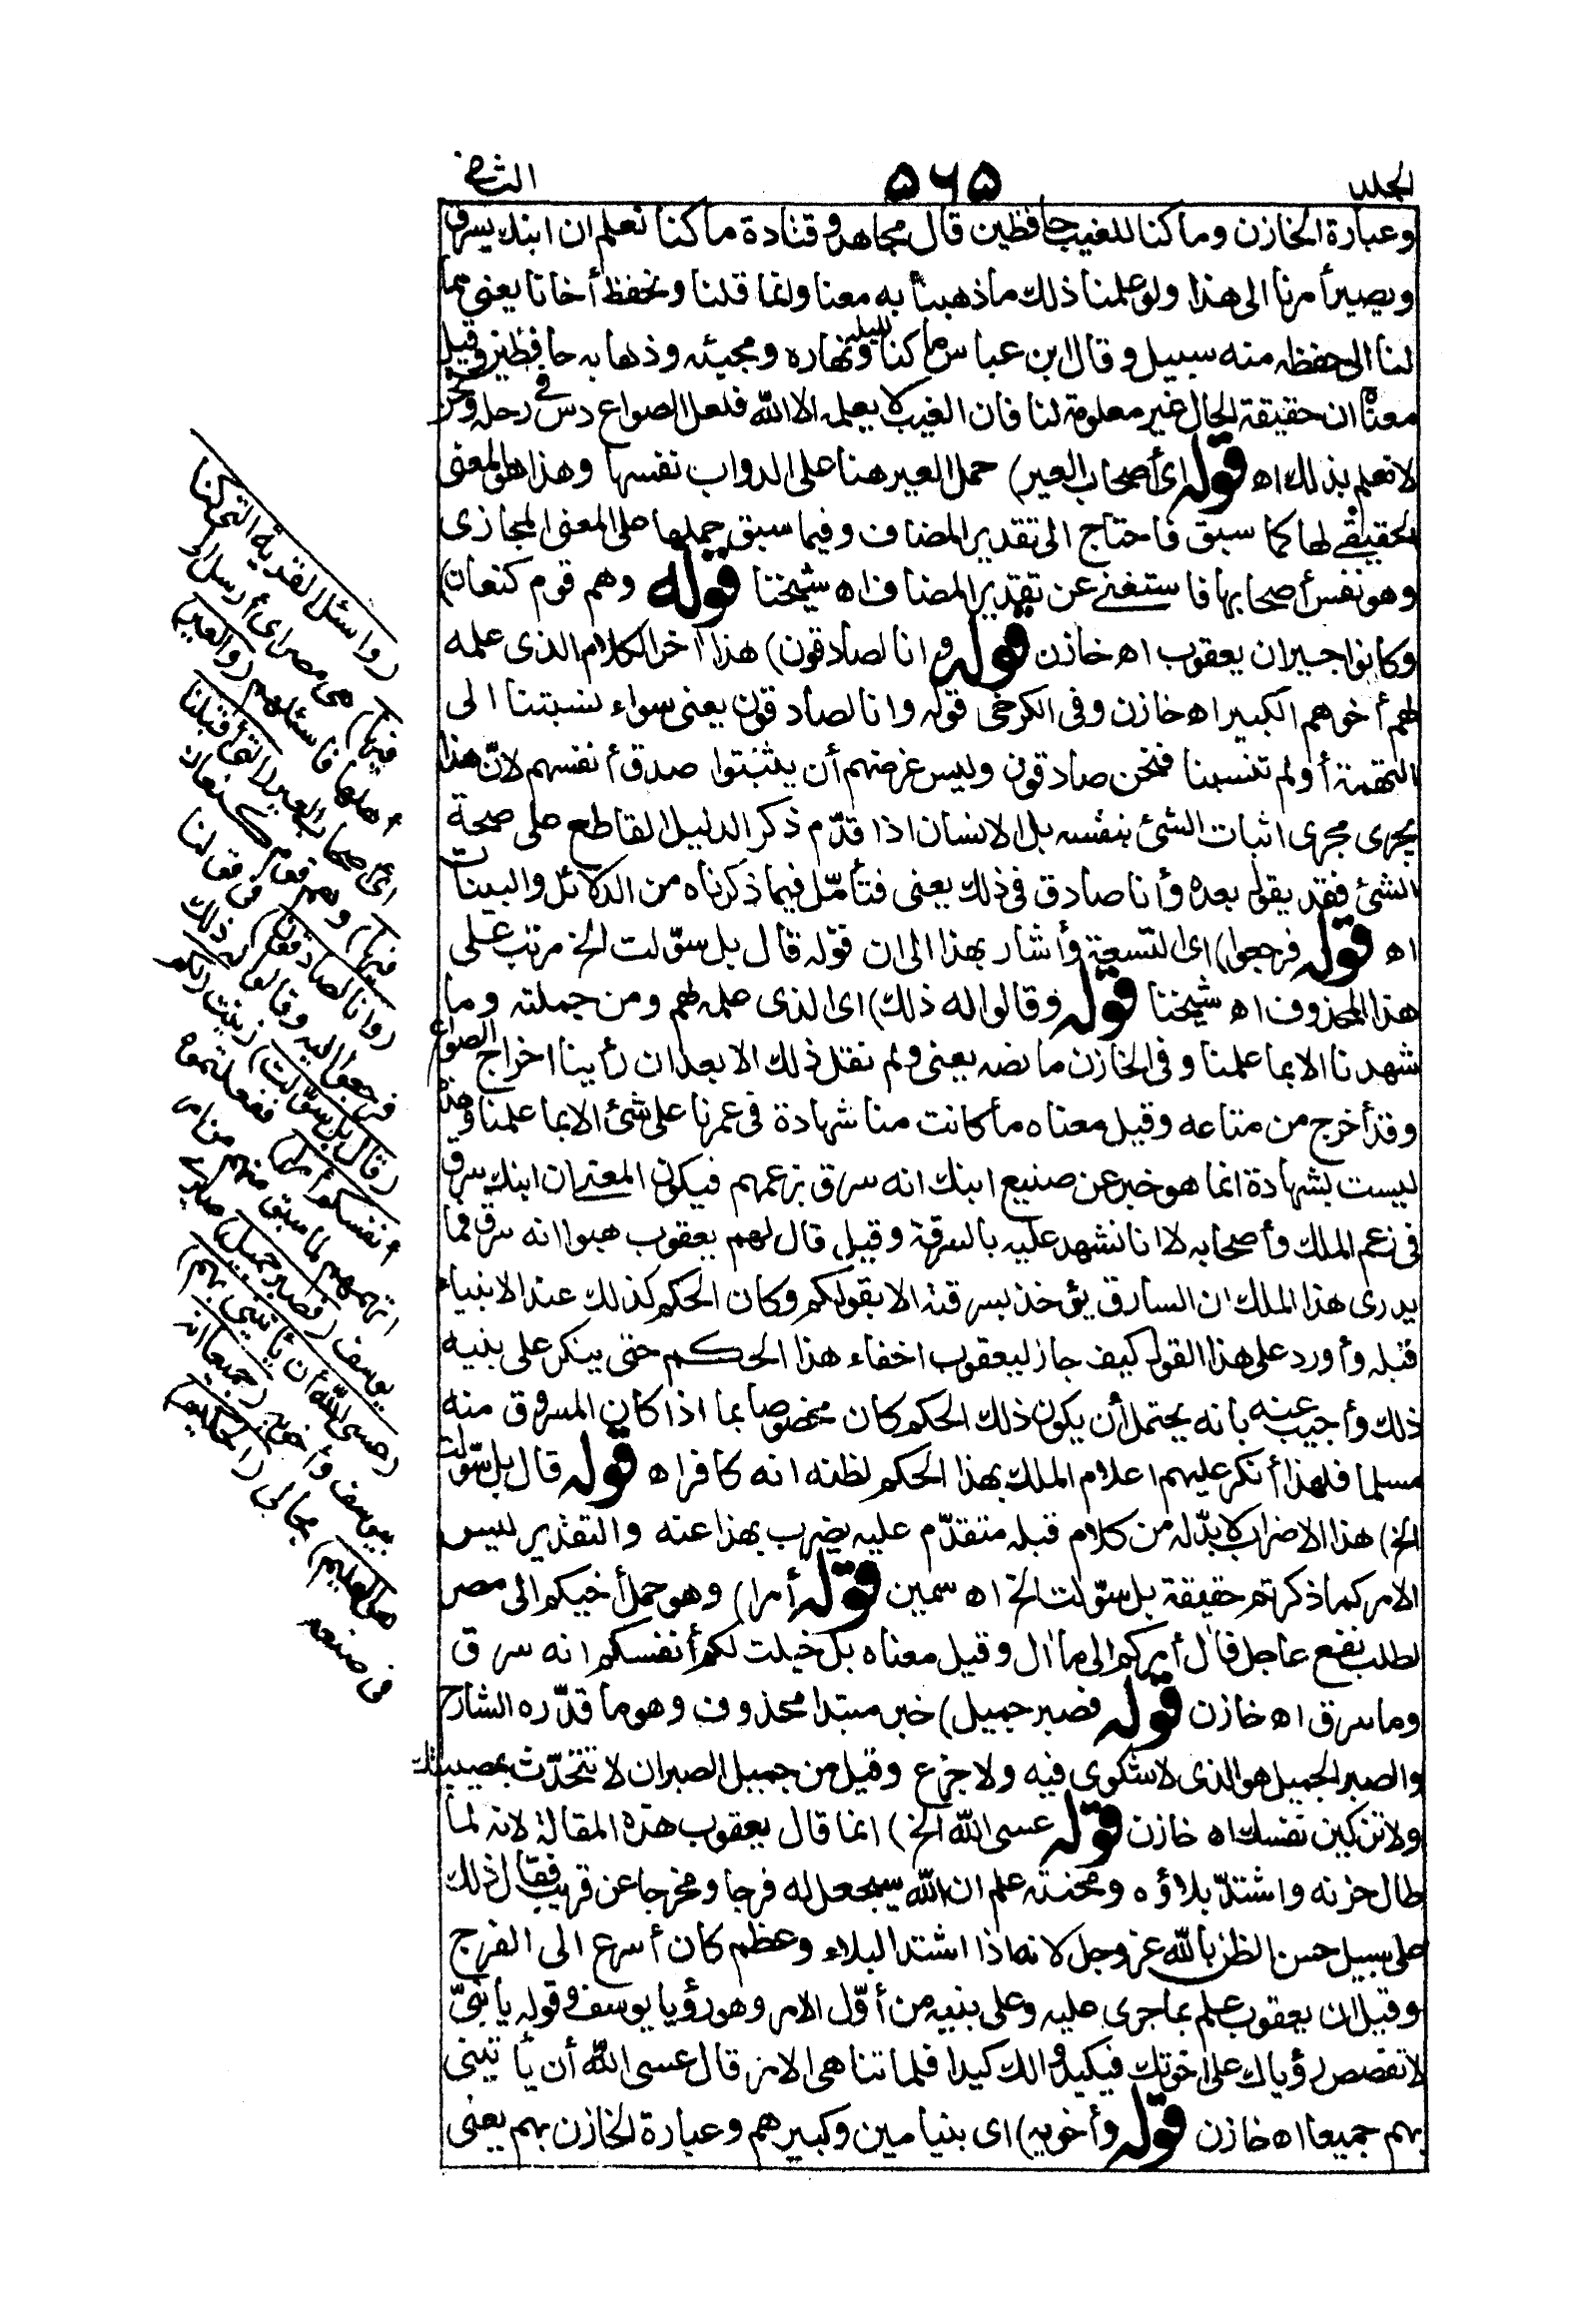 الجلد
٥٦٥
الثانى
وعبارة الخازن وما كنا للغيب حافظين قال مجاهد وقتادة ما كنا نعلم ان ابنك يسرق
ويصير أمرنا الى هذا ولو علمنا ذلك ما ذهبنا به معنا وانما قلنا ونحفظ أخانا يعنى مما
لنا الى حفظه منه سبيل وقال ابن عباس ما كنا لليله ونهاره ومجيئه وذهابه حافظين وقيل
معناه ان حقيقة الحال غير معلومة لنا فان الغيب لا يعلمه الا الله فلعل الصواع دس فى رحله ونحن
لا نعلم بذلك اه قوله أى أصحاب العير) حمل العير هنا على الدواب نفسها وهذا هو المعنى
الحقيقى لها كما سبق فاحتاج الى تقدير المضاف وفيما سبق حملها على المعنى المجازى
وهو نفس أصحابها فاستغنى عن تقدير المضاف اه شيخنا قوله وهم قوم كنعان)
وكانوا جيران يعقوب اه خازن قوله وانا لصادقون) هذا آخر الكلام الذى علمه
لهم أخوهم الكبير اه خازن وفى الكرخى قوله وانا لصادقون يعنى سواء نسبتنا الى
التهمة أو لم تنسبنا فنحن صادقون وليس غرضهم أن يثبتوا صدق أنفسهم لانّ هذا
يجرى مجرى اثبات الشئ بنفسه بل الانسان اذا قدّم ذكر الدليل القاطع على صحة
الشئ فقد يقول بعده وأنا صادق فى ذلك يعنى فتأمّل فيما ذكرناه من الدلائل والبينات
اه قوله فرجعوا) اى التسعة وأشار بهذا الى ان قوله قال بل سوّلت الخ مرتب على
هذا المحذوف اه شيخنا قوله وقالوا له ذلك) اى الذى علمه لهم ومن جملته وما
شهدنا الا بما علمنا وفى الخازن ما نصه يعنى ولم نقل ذلك الا بعد ان رأينا اخراج الصواع
وقد أخرج من متاعه وقيل معناه ما كانت منا شهادة فى عمرنا على شئ الا بما علمنا وهذه
ليست بشهادة انما هو خبر عن صنيع ابنك انه سرق بزعمهم فيكون المعنى ان ابنك سرق
فى زعم الملك وأصحابه لا انا نشهد عليه بالسرقة وقيل قال لهم يعقوب هبوا انه سرق فما
يدرى هذا الملك ان السارق يؤخذ بسرقته الا بقولكم وكان الحكم كذلك عند الانبياء
قبله وأورد على هذا القول كيف جاز ليعقوب اخفاء هذا الحكم حتى ينكر على بنيه
ذلك وأجيب عنه بأنه يحتمل أن يكون ذلك الحكم كان مخصوصا بما اذا كان المسروق منه
مسلما فلهذا أنكر عليهم اعلام الملك بهذا الحكم لظنه انه كافر اه قوله قال بل سوّلت
الخ) هذا الاضراب لا بدّ له من كلام قبله متقدّم عليه يضرب بهذا عنه والتقدير ليس
الامر كما ذكرتم حقيقة بل سوّلت الخ اه سمين قوله أمرا) وهو حمل أخيكم الى مصر
لطلب نفع عاجل فآل أمركم الى ما آل وقيل معناه بل خيلت لكم أنفسكم انه سرق
وما سرق اه خازن قوله فصبر جميل) خبر مبتدا محذوف وهو ما قدّره الشارح
والصبر الجميل هو الذى لا شكوى فيه ولا جزع وقيل من جميل الصبر ان لا تتحدّث بمصيبتك
ولا تزكين نفسك اه خازن قوله عسى الله الخ) انما قال يعقوب هذه المقالة لانه لما
طال حزنه واشتدّ بلاؤه ومحنته علم ان الله سيجعل له فرجا ومخرجا عن قريب فقال ذلك
على سبيل حسن الظن بالله عز وجل لانه اذا اشتد البلاء وعظم كان أسرع الى الفرج
وقيل ان يعقوب علم بما جرى عليه وعلى بنيه من أوّل الامر وهو رؤيا يوسف وقوله يا بنىّ
لا تقصص رؤياك على اخوتك فيكيدوا لك كيدا فلما تناهى الامر قال عسى الله أن يأتينى
بهم جميعا اه خازن قوله وأخويه) اى بنيامين وكبيرهم وعبارة الخازن بهم يعنى
(واسئل القرية التى كنا
فيها) هى مصر اى أرسل الى
أهلها فاسئلهم (والعير)
اى أصحاب العير (التى أقبلنا
فيها) وهم قوم كنعان
(وانا لصادقون) فى قولنا
فرجعوا اليه وقالوا له ذلك
(قال بل سوّلت) زينت (لكم
أنفسكم أمرا) ففعلتموه
اتهمهم لما سبق منهم من أمر
يوسف (فصبر جميل) صبرى
(عسى الله أن يأتينى بهم)
بيوسف وأخويه (جميعا انه
هو العليم) بحالى (الحكيم)
فى صنعه